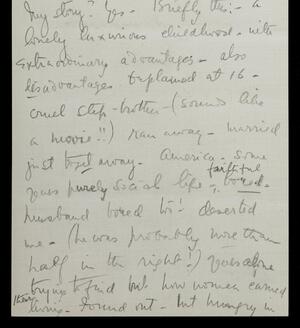 My story? Yes - Briefly this: - a
lonely luxurious childhood - with
extraordinary advantages - also
disadvantages Explained at 16 -
cruel step-brother - (sounds like
a movie!!) ran away - married
just to get away - America - some
years purely social life - faithful
bored -
husband bored too! deserted
me - (he was probably more than
half in the right!) years alone
trying to find out how women earned
living - Found out - but hungry in